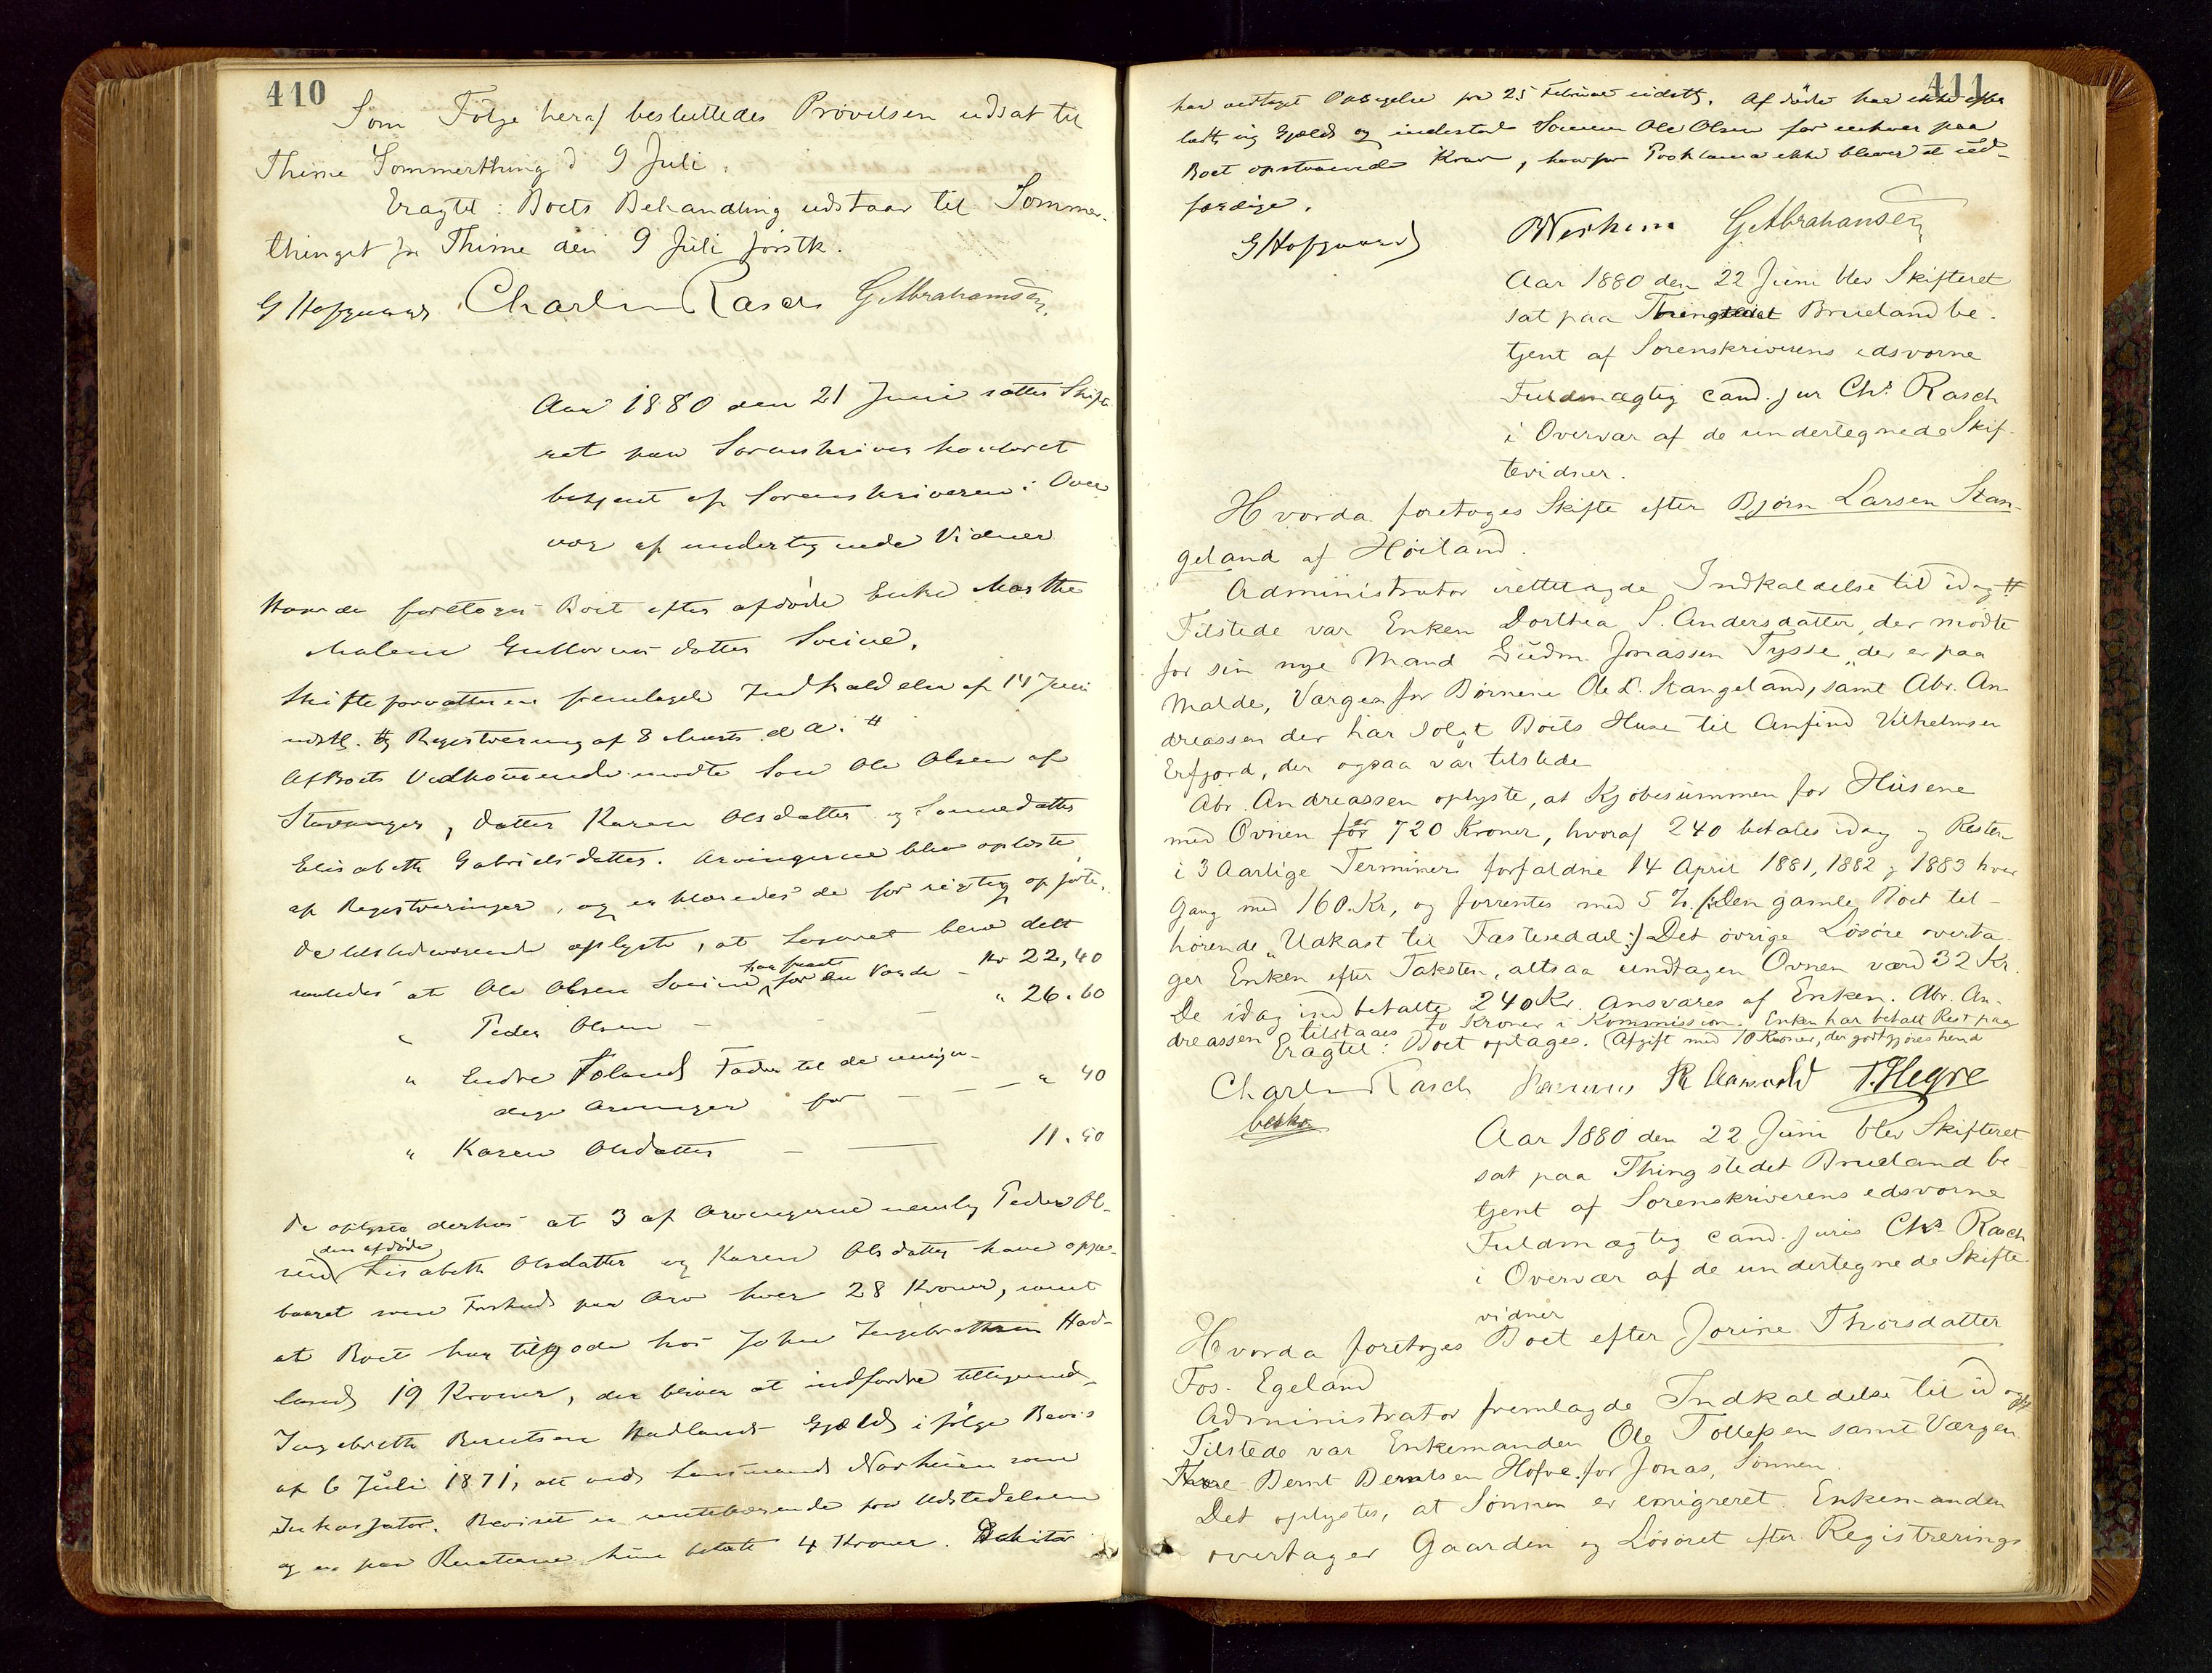 410
Som Følge heraf besluttedes Prøvelsen udsat til
Thime Sommerthing d 9 Juli.
Eragtet: Boets Behandling udstaar til Sommer-
thinget for Thime den 9 Juli førstk.
G Hofgaard Charles Rasch G. Abrahamsen.
Aar 1880 den 21 Juni sattes Skifte-
ret paa Sorenskriverkontoret
betjent af Sorenskriveren i Over
vær af undertegnede Vidner
Hvorda foretoges Boet efter afdøde Enke Marthe
Malene Guttorms datter
Skifteforvalteren fremlagde Indkaldelse af 14 Juni
sidstl. og Registrering af 8 Marts d. A. #
Af Boets Vedkommende mødte Søn Ole Olsen af
Stavanger, datter Karen Olsdatter og Sønnedatter
Elisabeth Gabrielsdatter. Arvingerne blev oplæste
af Registreringen, og erklæredes de for rigtig opførte.
De tilstedeværende oplyste, at Løsøret blev delt
saaledes at Ole Olsen har faaet for en Værdi - Kr 22,40
" Peder Olsen - - - " 26.60
" Endre Foland Fader til de umyn-
dige Arvinger for - - - " 40
" Karen Olsdatter - - 11.50
De oplyste derhos at 3 af Arvingerne nemlig Peder Ol-
sen, den afdøde Lisabeth Olsdatter og Karen Olsdatter have oppe-
baaret som Forskud paa Arv hver 28 Kroner, samt
at Boet har tilgode hos John Ingebrethsen Had-
land 19 Kroner, der bliver at indfordre tilligemed
Ingebreth Berentsen Hadlands Gjæld ifølge Bevis
af 6 Juli 1871, alt ved Lensmand Norheim som
Inkassator. Beviset er rentebærende fra Udstedelsen
og er paa Renterne kun betalt 4 Kroner. Debitor
411
har vedtaget Opsigelse fra 25 Februar sidstl. Afdøde har ikke efter
ladt sig Gjæld og indestod Sønnen Ole Olsen for enhver paa
Boet opstaaende Krav, hvorfor Proklama ikke bliver at ud-
færdige.
G Hofgaard G. Abrahamsen
Aar 1880 den 22 Juni blev Skifteret
sat paa Thingstedet Brueland be-
tjent af Sorenskriverens edsvorne
Fuldmægtig cand. jur Chs. Rasch
i Overvær af de undertegnede Skif-
tevidner.
Hvorda foretoges Skifte efter Bjørn Larsen Stan-
geland af Høiland.
Administrator irettelagde Indkaldelse til idag #
Tilstede var Enken Dorthea S. Andersdatter, der mødte
for sin nye Mand Gudm. Jonassen Tysse, der er paa
Malde, Værgen for Børnene Ole L. Stangeland, samt Abr. An-
dreassen der har solgt Boets Huse til Anfind Vilhelmsen
Erfjord, der ogsaa var tilstede
Abr. Andreassen oplyste, at Kjøbesummen for Husene
med Ovnen er 720 Kroner, hvoraf 240 betales idag og Resten
i 3 Aarlige Terminer forfaldne 14 April 1881, 1882 og 1883 hver
Gang med 160 Kr, og forrentes med 5 %. /: Den gamle Boet til-
hørende Udkast til Fæsteseddel :/ Det øvrige Løsøre overta-
ger Enken efter Taksten, altsaa undtagen Ovnen værd 32 Kr.
De idag indbetalte 240 Kr. ansvares af Enken. Abr. An-
dreassen tilstaaes 10 Kroner i Kommission. Enken har betalt Rest paa
Eragtet: Boet optages. (Afgift med 10 Kroner, der godtgjøres hende
Charles Rasch T. Hegre
beskr
Aar 1880 den 22 Juni blev Skifteret
sat paa Thingstedet Brueland be-
tjent af Sorenskriverens edsvorne
Fuldmægtig cand. juris Chs. Rasch
i Overvær af de undertegnede Skifte-
vidner
Hvorda foretoges Boet efter Jorine Thorsdatter
Fos-Egeland
Administrator fremlagde Indkaldelse til idag #
Tilstede var Enkemanden Ole Tollefsen samt Værgen
Bernt Berntsen Hofve for Jonas, Sønnen.
Det oplystes, at Sønnen er emigreret. Enkemanden
overtager Gaarden og Løsøret efter Registrerings